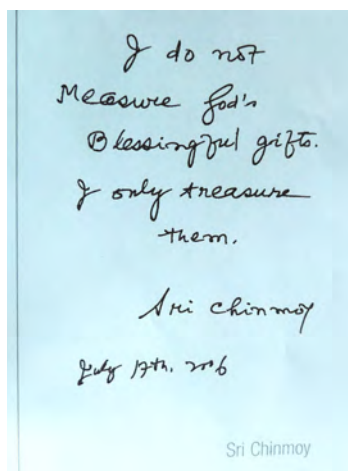 I do not
Measure God's
Blessingful gifts.
I only treasure
them.
Sri Chinmoy
July 17th, 2006
Sri Chinmoy